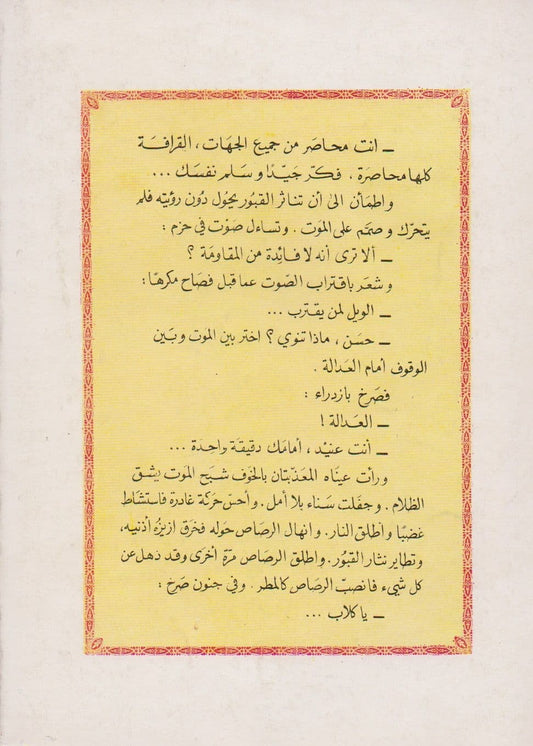 ـ انت محاصَر من جميع الجهَات ، القرافَة
كلها محاصرة . فكّر جَيّدًا و سَلم نفسَك ...
و اطمأن الى أن تناثر القبُور يحُول دُون رؤيته فلم
يتحرّك وصمّم على الموَت . وتساءل صَوْت في حزم :
ـ ألا ترى أنه لا فائِدة من المقاومَة ؟
و شعَر باقتراب الصّوت عما قبل فصَاح مكرهًا :
ـ الويل لمن يقترب ...
ـ حسَن ، ماذا تنوي ؟ اختر بين الموت وبَين
الوقوف أمام العَدالة .
فصَرخ بازدراء :
ـ العَدالة !
ـ أنت عنيْد ، أمامَك دقيقَة واحِدة ...
ورأت عينَاه المعَذّبتان بالخَوف شبَح الموَت يشق
الظلام . وجفَلت سَناء بلا أمل . وأحسّ حرَكة غادرة فاستشَاط
غضبًا وأطلق النار . وانهال الرصَاص حَوله فخرَق أزيزُه أذنيه،
وتطاير نثار القبُور . واطلق الرصَاص مَرّة أخرَى وقد ذهَل عن
كل شيْء فانصَبّ الرصَاص كالمطر . وفي جنون صَرخ :
ـ يا كلاب ...